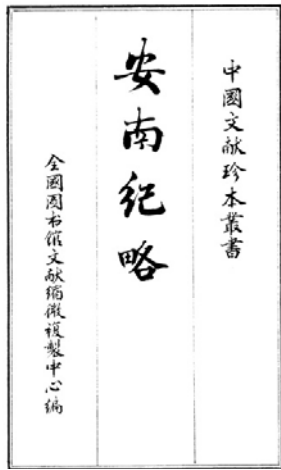 中國文献珍本叢書
安南纪略
全國图书馆文献缩微複製中心編